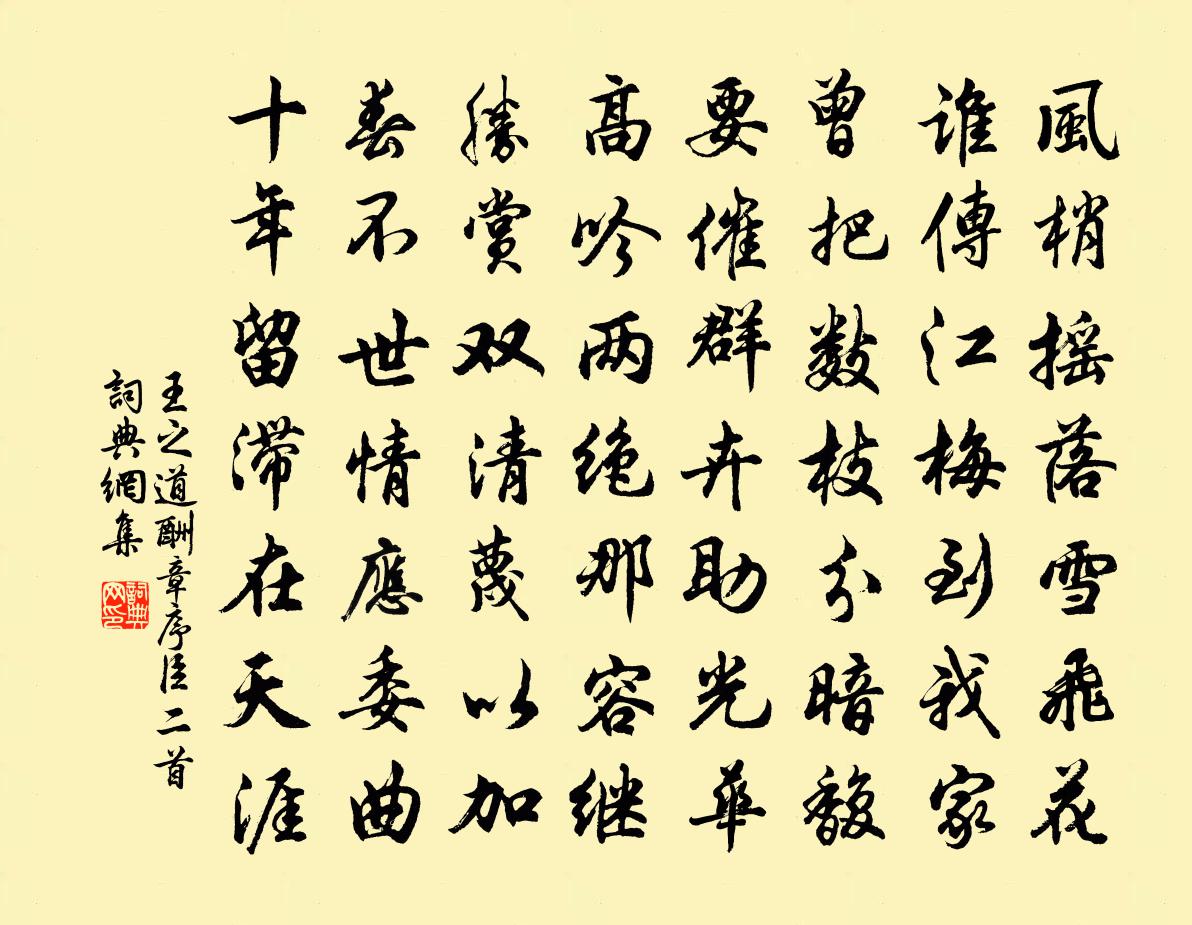 風梢摇落雪飛花
誰傳江梅到我家
曾把數枝分暗馥
要催群卉助光華
高吟两绝那容继
勝賞双清蔑以加
春不世情應委曲
十年留滞在天涯
王之道酬章序臣二首
詞典網集
詞典网印